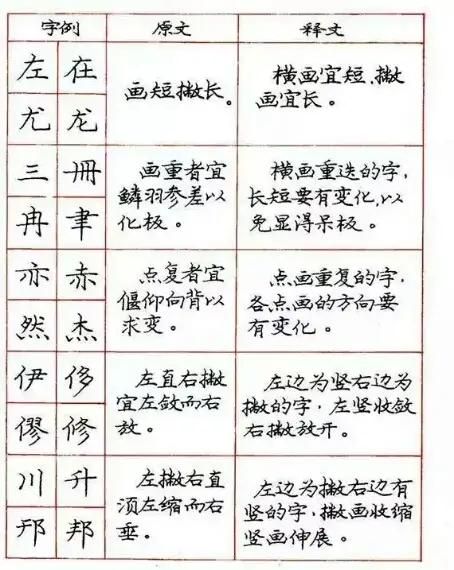 字例 原文 释文
左 在
尤 龙
画短撇长。
横画宜短,撇
画宜长。
三 冊
冉 聿
画重者宜
鳞羽参差以
化板。
横画重迭的字,
长短要有变化,以
免显得呆板。
亦 赤
然 杰
点复者宜
偃仰向背以
求变。
点画重复的字,
各点画的方向要
有变化。
伊 侈
僇 修
左直右撇
宜左敛而右
放。
左边为竖右边为
撇的字,左竖收敛
右撇放开。
川 升
邘 邦
左撇右直
须左缩而右
垂。
左边为撇右边有
竖的字,撇画收缩
竖画伸展。